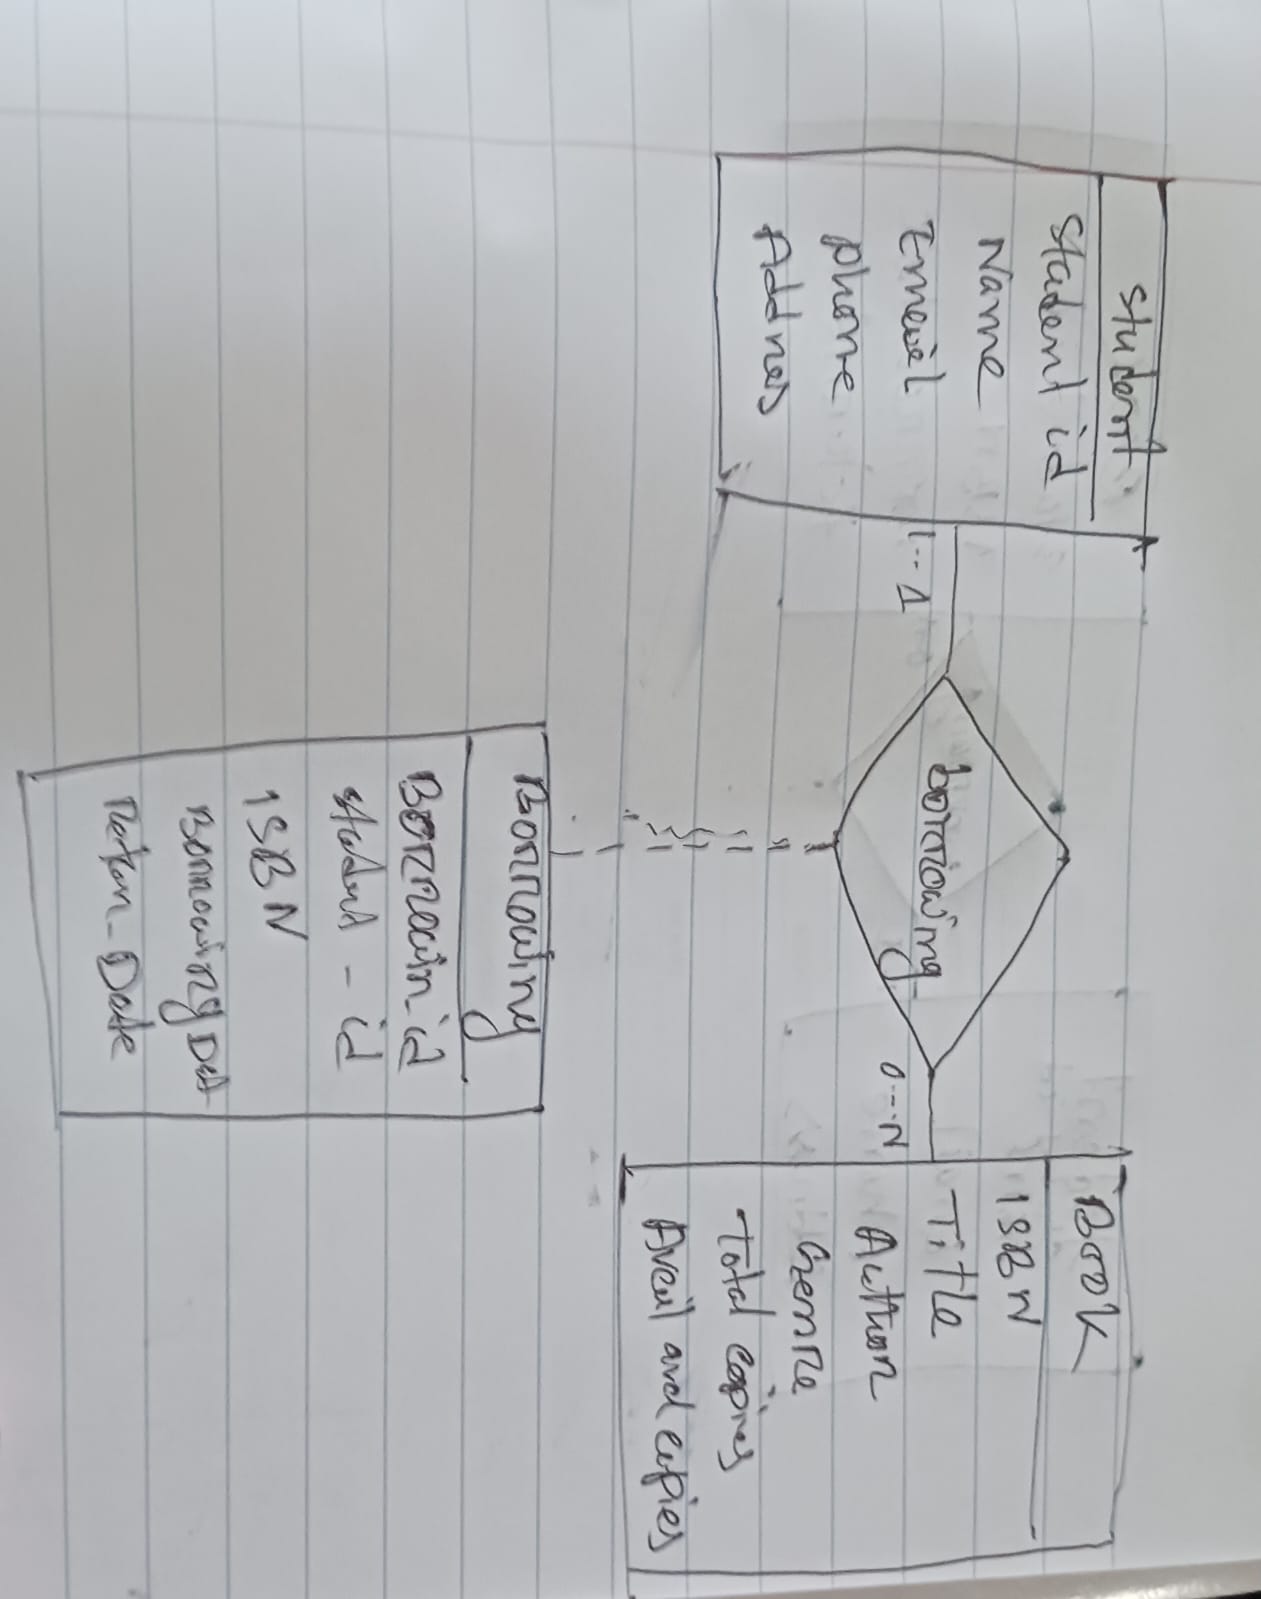 student
Student id
Name
Email
phone
Address
1-- 1
borrowing
0---N
BOOK
ISBN
Title
Author
Genre
Total copies
Avail and copies
Borrowing
Borrowin_id
student - id
ISBN
Borrowing Dat
Return_Date